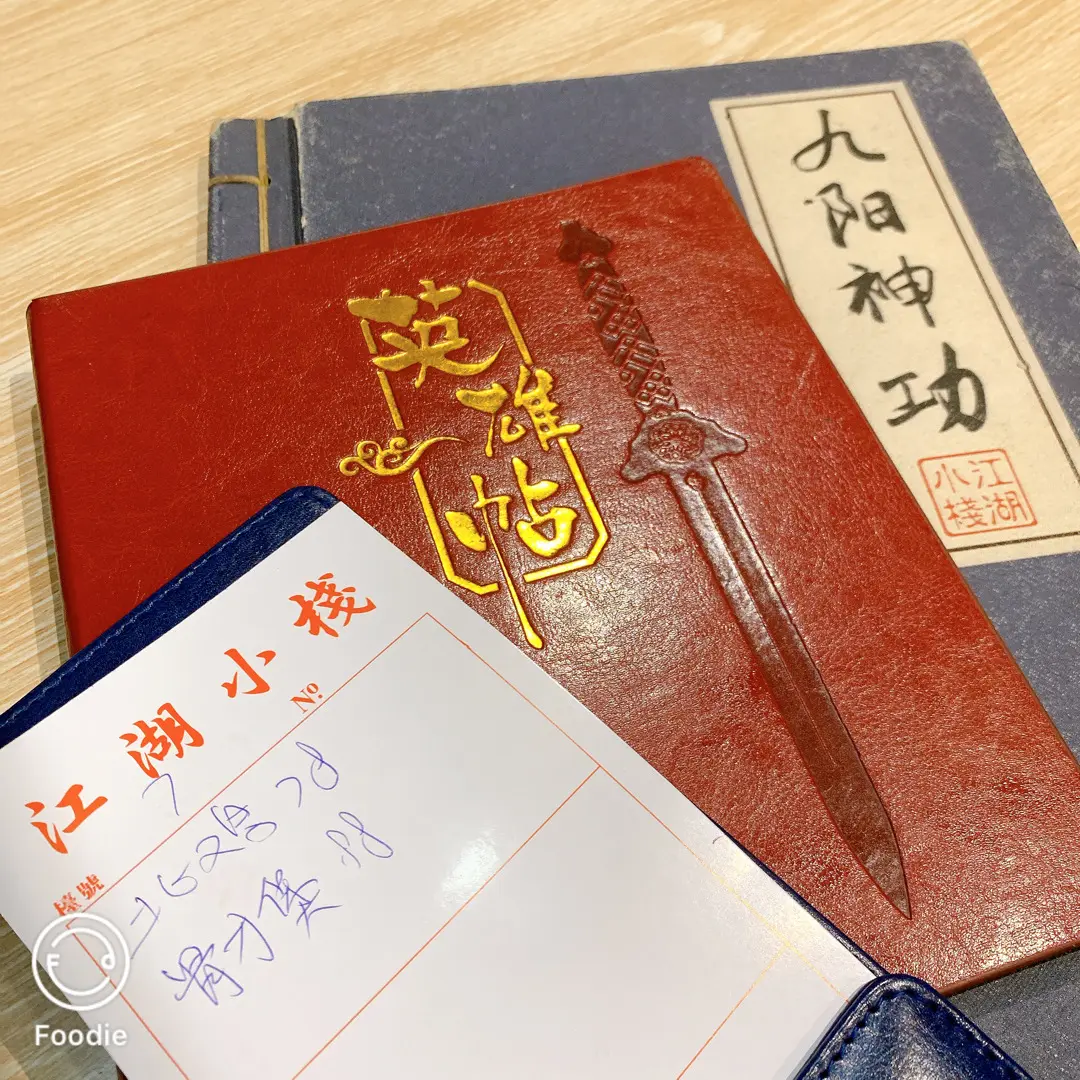 九阳神功
江湖
小栈
英雄帖
江湖小栈
No.
檯號
7
78
Foodie